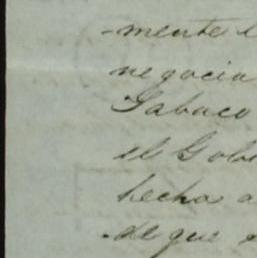 -mente e
negocia
Tabaco
el Gobe
hecha a
de que e